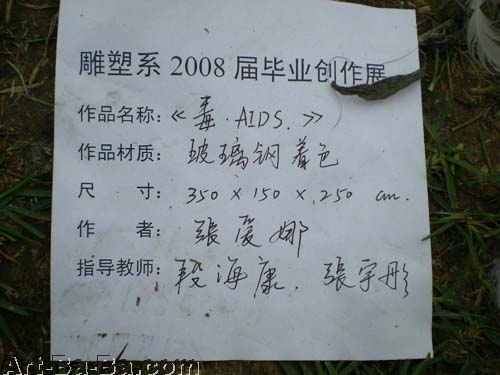 雕塑系 2008 届毕业创作展
作品名称：《毒·AIDS.》
作品材质：玻璃钢着色
尺 寸：350 × 150 × 250 cm.
作 者：張爱娜
指导教师：段海康. 張宇彤
Art-Ba-Ba.com